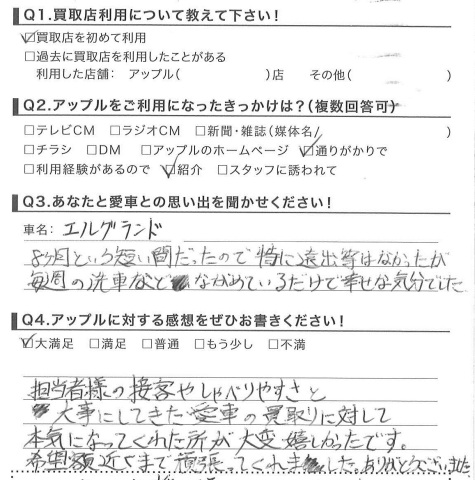 Q1.買取店利用について教えて下さい!
☑買取店を初めて利用
□過去に買取店を利用したことがある
利用した店舗: アップル( )店 その他( )
Q2.アップルをご利用になったきっかけは?(複数回答可)
□テレビCM □ラジオCM □新聞・雑誌(媒体名/ )
□チラシ □DM □アップルのホームページ ☑通りがかりで
□利用経験があるので ☑紹介 □スタッフに誘われて
Q3.あなたと愛車との思い出を聞かせください!
車名: エルグランド
8ヶ月という短い間だったので特に遠出等はなかったが
毎週の洗車など ながめているだけで幸せな気分でした
Q4.アップルに対する感想をぜひお書きください!
☑大満足 □満足 □普通 □もう少し □不満
担当者様の接客やしゃべりやすさと
大事にしてきた愛車の買取りに対して
本気になってくれた所が大変嬉しかったです。
希望額近くまで頑張ってくれました。ありがとうございました